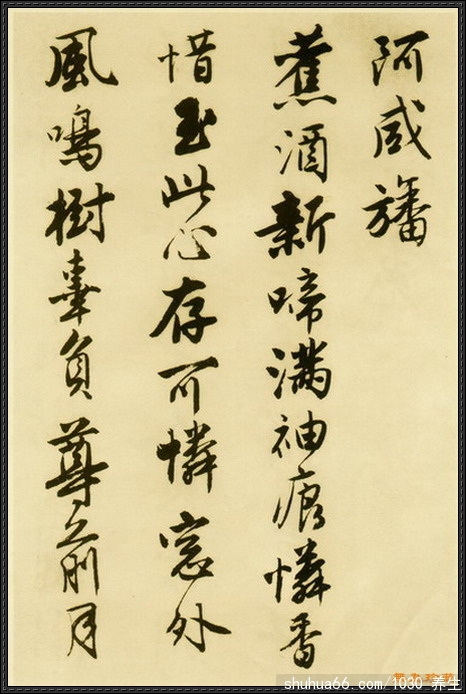 阿咸旛
蕉酒新啼滿袖痕憐香
惜玉此心存可憐窓外
風鳴樹辜負尊前月
shuhua66.com/1030_养生